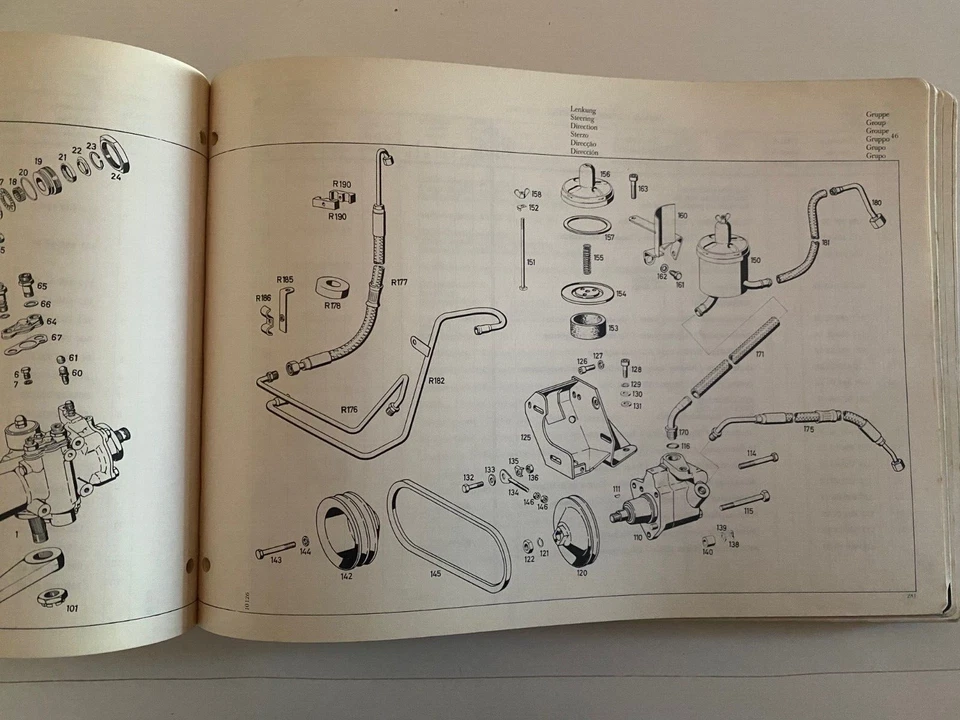 19
20
21
22
23
24
18
65
66
64
67
61
60
6
7
1
101
Lenkung
Steering
Direction
Sterzo
Direcção
Dirección
Gruppe
Group
Groupe
Gruppo 46
Grupo
Grupo
R190
R190
R185
R186
R178
R177
R182
R176
158
152
151
156
163
157
155
154
153
160
162
161
150
181
180
171
126
127
128
129
130
131
125
170
116
175
132
133
135
136
134
146
146
111
110
114
115
139
138
140
143
144
142
145
122
121
120
10 126